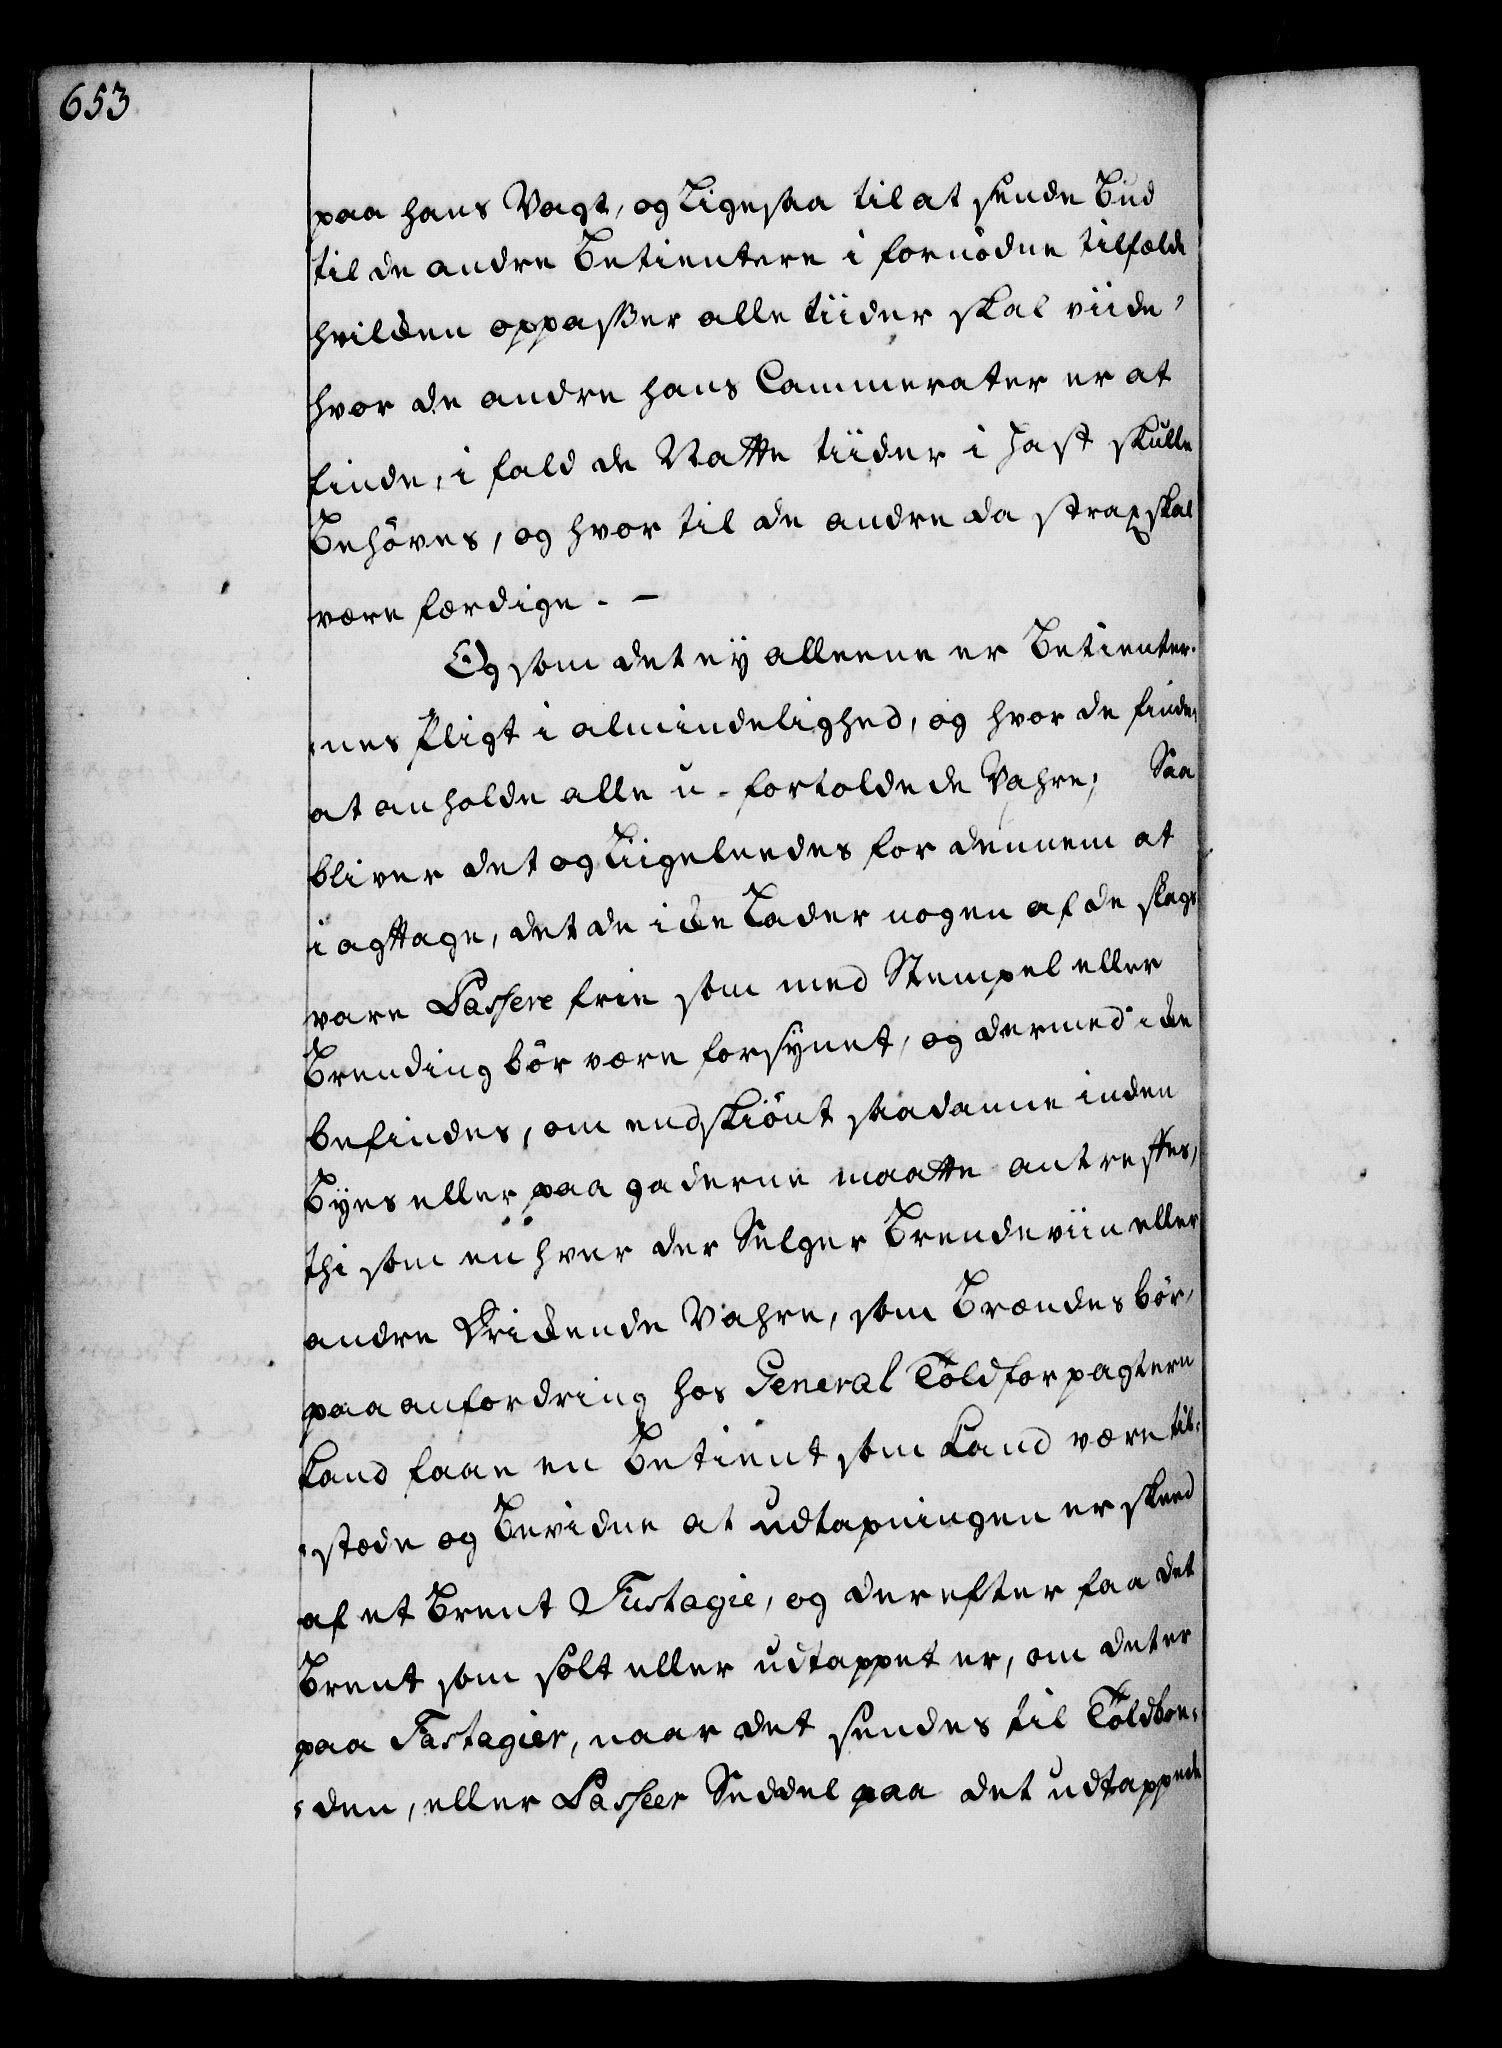 653
paa hans Vagt, og Ligesaa til at sende Bud
til de andre Betientere i fornödne tilfælde
hvilcken oppasser alle tiider skal viide,
hvor de andre hans Cammerater er at
finde, i fald de Natte tiider i Hast skulle
Behöves, og hvor til de andre da strax skal
være færdige. —
Og som det ey alleene er Betienter-
nes Pligt i almindelighed, og hvor de finde,
at anholde alle u-fortoldede Vahre; Saa
bliver det og Liigeleedes for dennem at
i agttage, det de icke Lader nogen af de slags
vare Passere frie som med Stempel eller
Brending bör være forsÿnet, og dermed icke
befindes, om endskiönt saadanne inden
Byes eller paa gaderne maatte antreffes,
thi som en hver der Selger Brendeviin eller
andre Drickende Vahre, som Brændes bör,
paa anfordring hos General Toldforpagtere
kand faae en Betient som kand være til-
stæde og Bevidne at udtapningen er skeed
af et Brent Fustagie, og derefter faa det
Brent som solt eller udtappet er, om det er
paa Fastagier, naar det sendes til Toldboe-
den, eller Passeer Seddel paa det udtappede